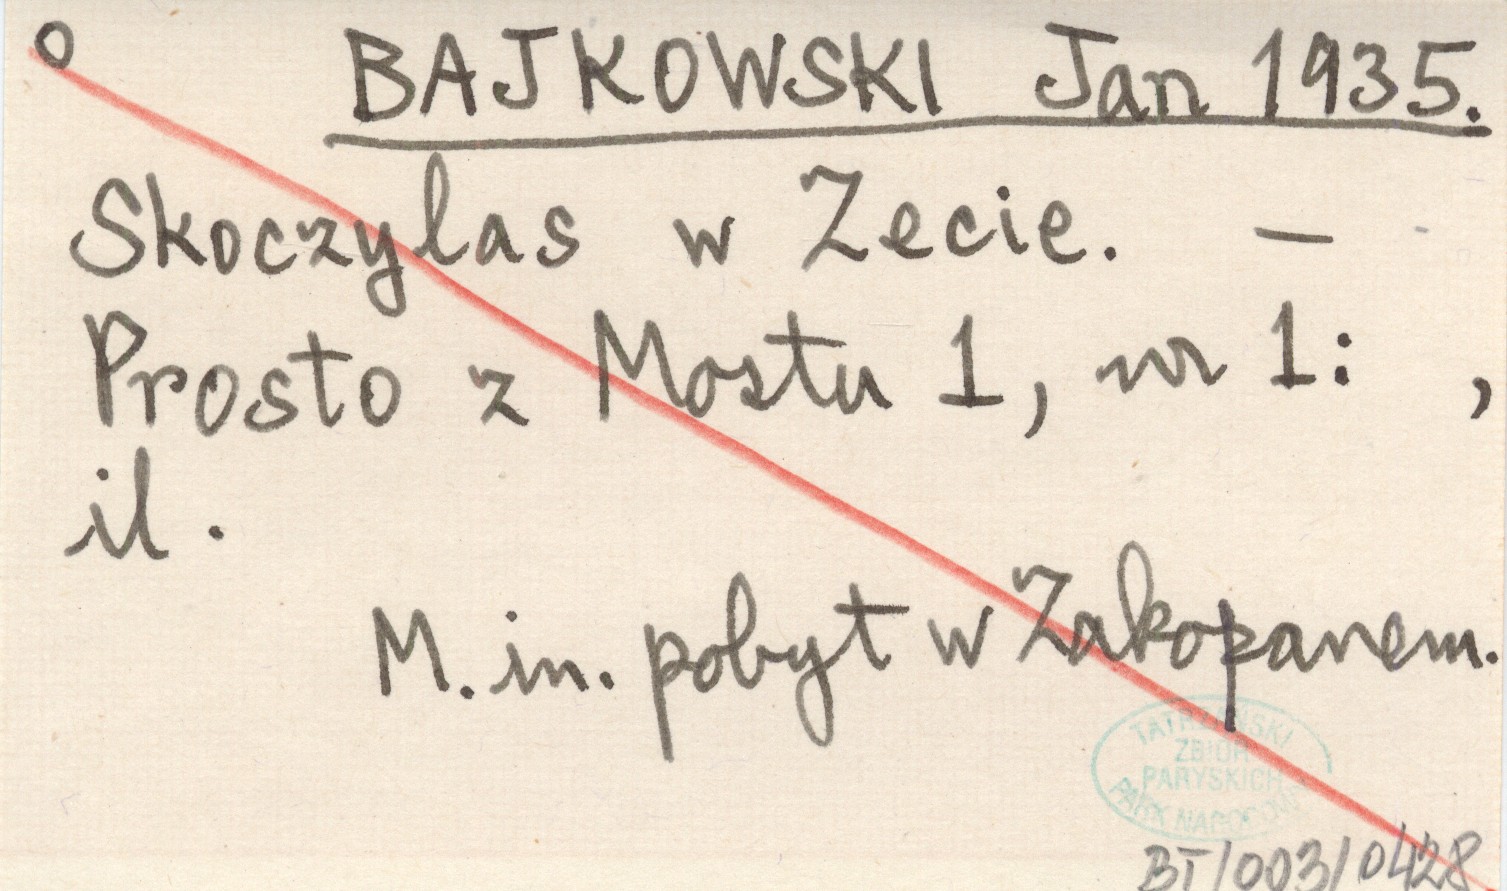 o BAJKOWSKI Jan 1935.
Skoczylas w Zecie. —
Prosto z Mostu 1, nr 1: ,
il.
M. in. pobyt w Zakopanem.
TATRZAŃSKI
ZBIÓR
PARYSKICH
PARK NARODOWY
BT/003/0428